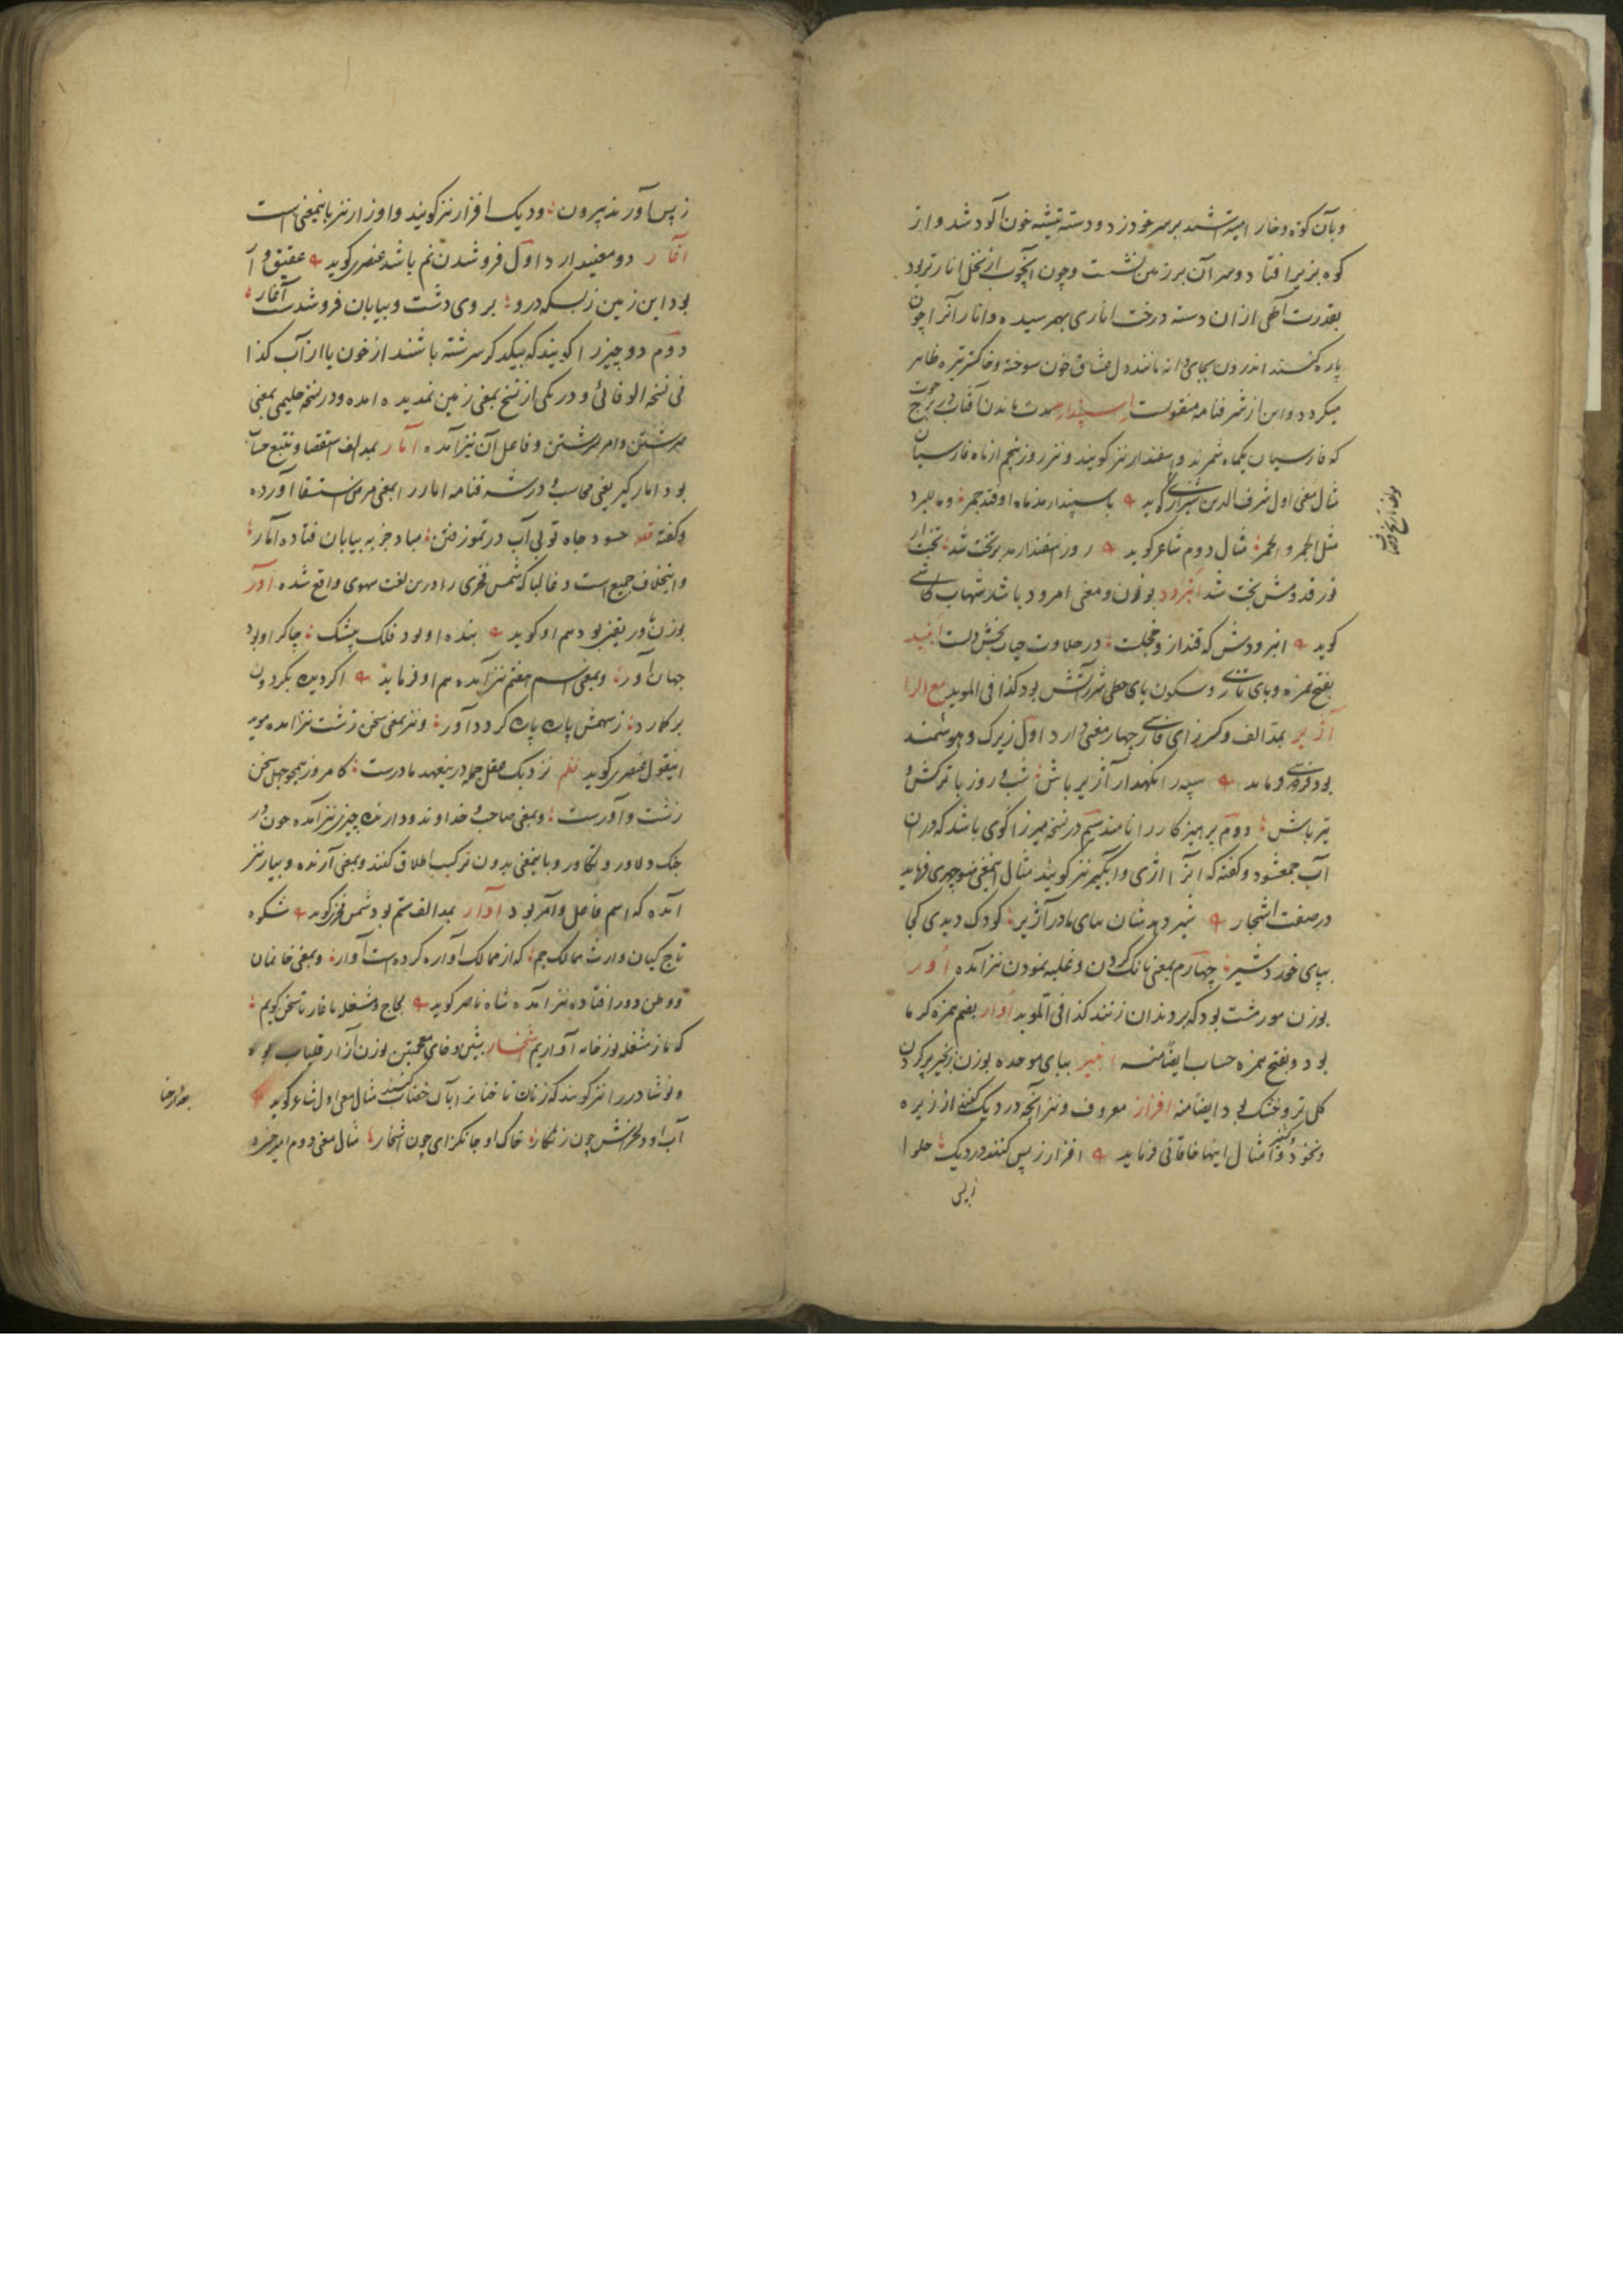 و بآن کوه و خارا میتراشید بر سر خود زد و دسته تیشه خون آلود شد و از
کوه بزیر افتاد و سر آن بر زمین نشست و چون آنچوب از نخل انار تر بود
بقدرت آلهی از ان دسته درخت اناری بهم رسیده و انار آنرا چون
پاره کنند اندرون بجای دانه مانند دل عشاق خون سوخته و خاکستر تیره ظاهر
میگردد و این از شرفنامه منقولست اسپندار مدت ماندن آفتاب در برج حوت
که فارسیان یکماه شمرند و اسفندار نیز گویند و نیز روز پنجم از ماه فارسیان
مثال معنی اول شرف الدین شیرازی گوید با سپندارمذ ماه اوفتد جمره و
مثل الجمر و الخمر مثال دوم شاعر گوید روز اسفندارمذ بر تخت شد
فرقدوش بخت شد انبرود بوزن و معنی امرود باشد شهاب کاشی
گوید انبرودش که قند ازو خجلست در حلاوت حیات بخش دلست ابید
بفتح همزه و بای تازی و سکون یای حطی شرر آتش بود کذا فی الموید مع الرا
آژیر بمد الف و کسر زای فارسی چهار معنی دارد اول زیرک و هوشمند
بود فردوسی فرماید سپه را نگهدار و آژیر باش شب و روز با ترکش و
تیر باش دوم پرهیزکار را نامند سیم در نسخه میرزا گوی باشد که در ان
آب جمع شود و گفته که انرا اژی و آبگیر نیز گویند مثال این معنی منوچهری فرماید
در صفت اشجار شیر دهدشان بپای مادر آژیر کودک دیدی کجا
بپای خورد شیر چهارم بمعنی بانک کردن و غلبه نمودن نیز آمده اور
بوزن مور مشت بود که بر دندان زنند کذا فی الموید اوار بضم همزه گرما
بود و بفتح همزه حساب ایضا منه انبیر ببای موحده بوزن زنجیر پر کردن
گل تر و خشک بود ایضا منه افزار معروف و نیز آنچه در دیک کنند از زیره
و نخود و کشنیز و امثال اینها خاقانی فرماید افزار ز پس کنند در دیک حلوا
ز پس
زپس آورند بیرون و دیک افزار نیز گویند و اوزار نیز باینمعنی است
آغار دو معنی دارد اول فرو شدن نم باشد عنصری گوید عقیق و
بود این زمین زبسکه درو بروی دشت و بیابان فرو شدست آغار
دوم دو چیز را گویند که بیکدیگر سرشته باشند از خون یا از آب کذا
فی نسخه الوفائی و در یکی از نسخ بمعنی زمین نمدیده آمده و در نسخه حلیمی بمعنی
سرشتن و امر بسرشتن و فاعل آن نیز آمده آمار بمد الف استقصا و تتبع حساب
بود امارگیر یعنی محاسب و در شرفنامه امار را بمعنی مرض استسقا آورده
و گفته حسود جاه تو بی آب در تموز فتن مباد جز به بیابان فتاده آمار
و اینخلاف جمیع است و غالبا که شمس فخری را درین لغت سهوی واقع شده آور
بوزن باور یقین بود هم او گوید بنده او بود فلک بیشک چاکر او بود
جهان آور و بمعنی اسم هفتم نیز آمده هم او فرماید اگر دیک بگردون
بر کارد ز سهمش پاره پاره گردد آور و نیز بمعنی سخن زشت نیز آمده
اینقول عنصری گوید نظم نزدیک عقل جمله درین عهد باورست کامروز همچو جهل سخن
زشت و آورست و بمعنی صاحب و خداوند و دارنده چیز نیز آمده چون
جنک و دلاور و تکاور و باینمعنی بدون ترکیب اطلاق نکنند و بمعنی آرنده و بیار نیز
آمده که اسم فاعل و امر بود آوار بمد الف ستم بود شمس فخری گوید شکوه
تاج کیان وارث ممالک جم که از ممالک آواره کرده است آوار و بمعنی خانمان
و وطن دور افتاده نیز آمده شاه ناصر گوید
که ما ز مشغله نوز خانه آواریم شخار بشین و خای معجمتین بوزن آزار قلیاب بود
و نوشادر را نیز گویند که زنان ناخنانرا بآن خضاب کنند مثال معنی اول شاعر گوید
آب او دلخراش چون زنگار خاک او جانگزای چون شخار مثال معنی دوم امیر خسرو
بعد از حنا